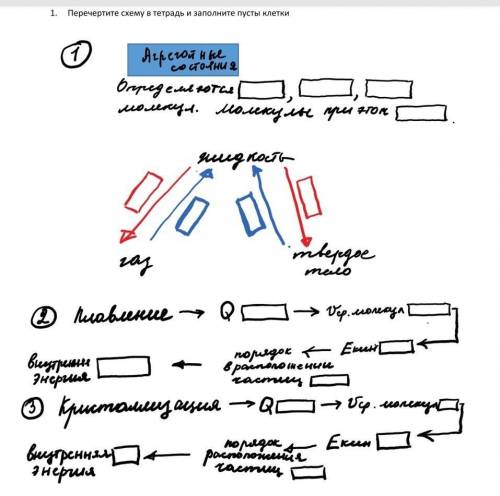 1. Перечертите схему в тетрадь и заполните пусты клетки
1
Агрегатные
состояния
Определяются , ,
молекул. Молекулы при этом .
жидкость
газ
твердое
тело
2 Плавление → Q → Vср. молекул
внутренн
энергия
← порядок
в расположении
частиц
← Eкин
3 Кристаллизация → Q → Vср. молекул
внутренняя
энергия
← порядок
расположения
частиц
← Eкин